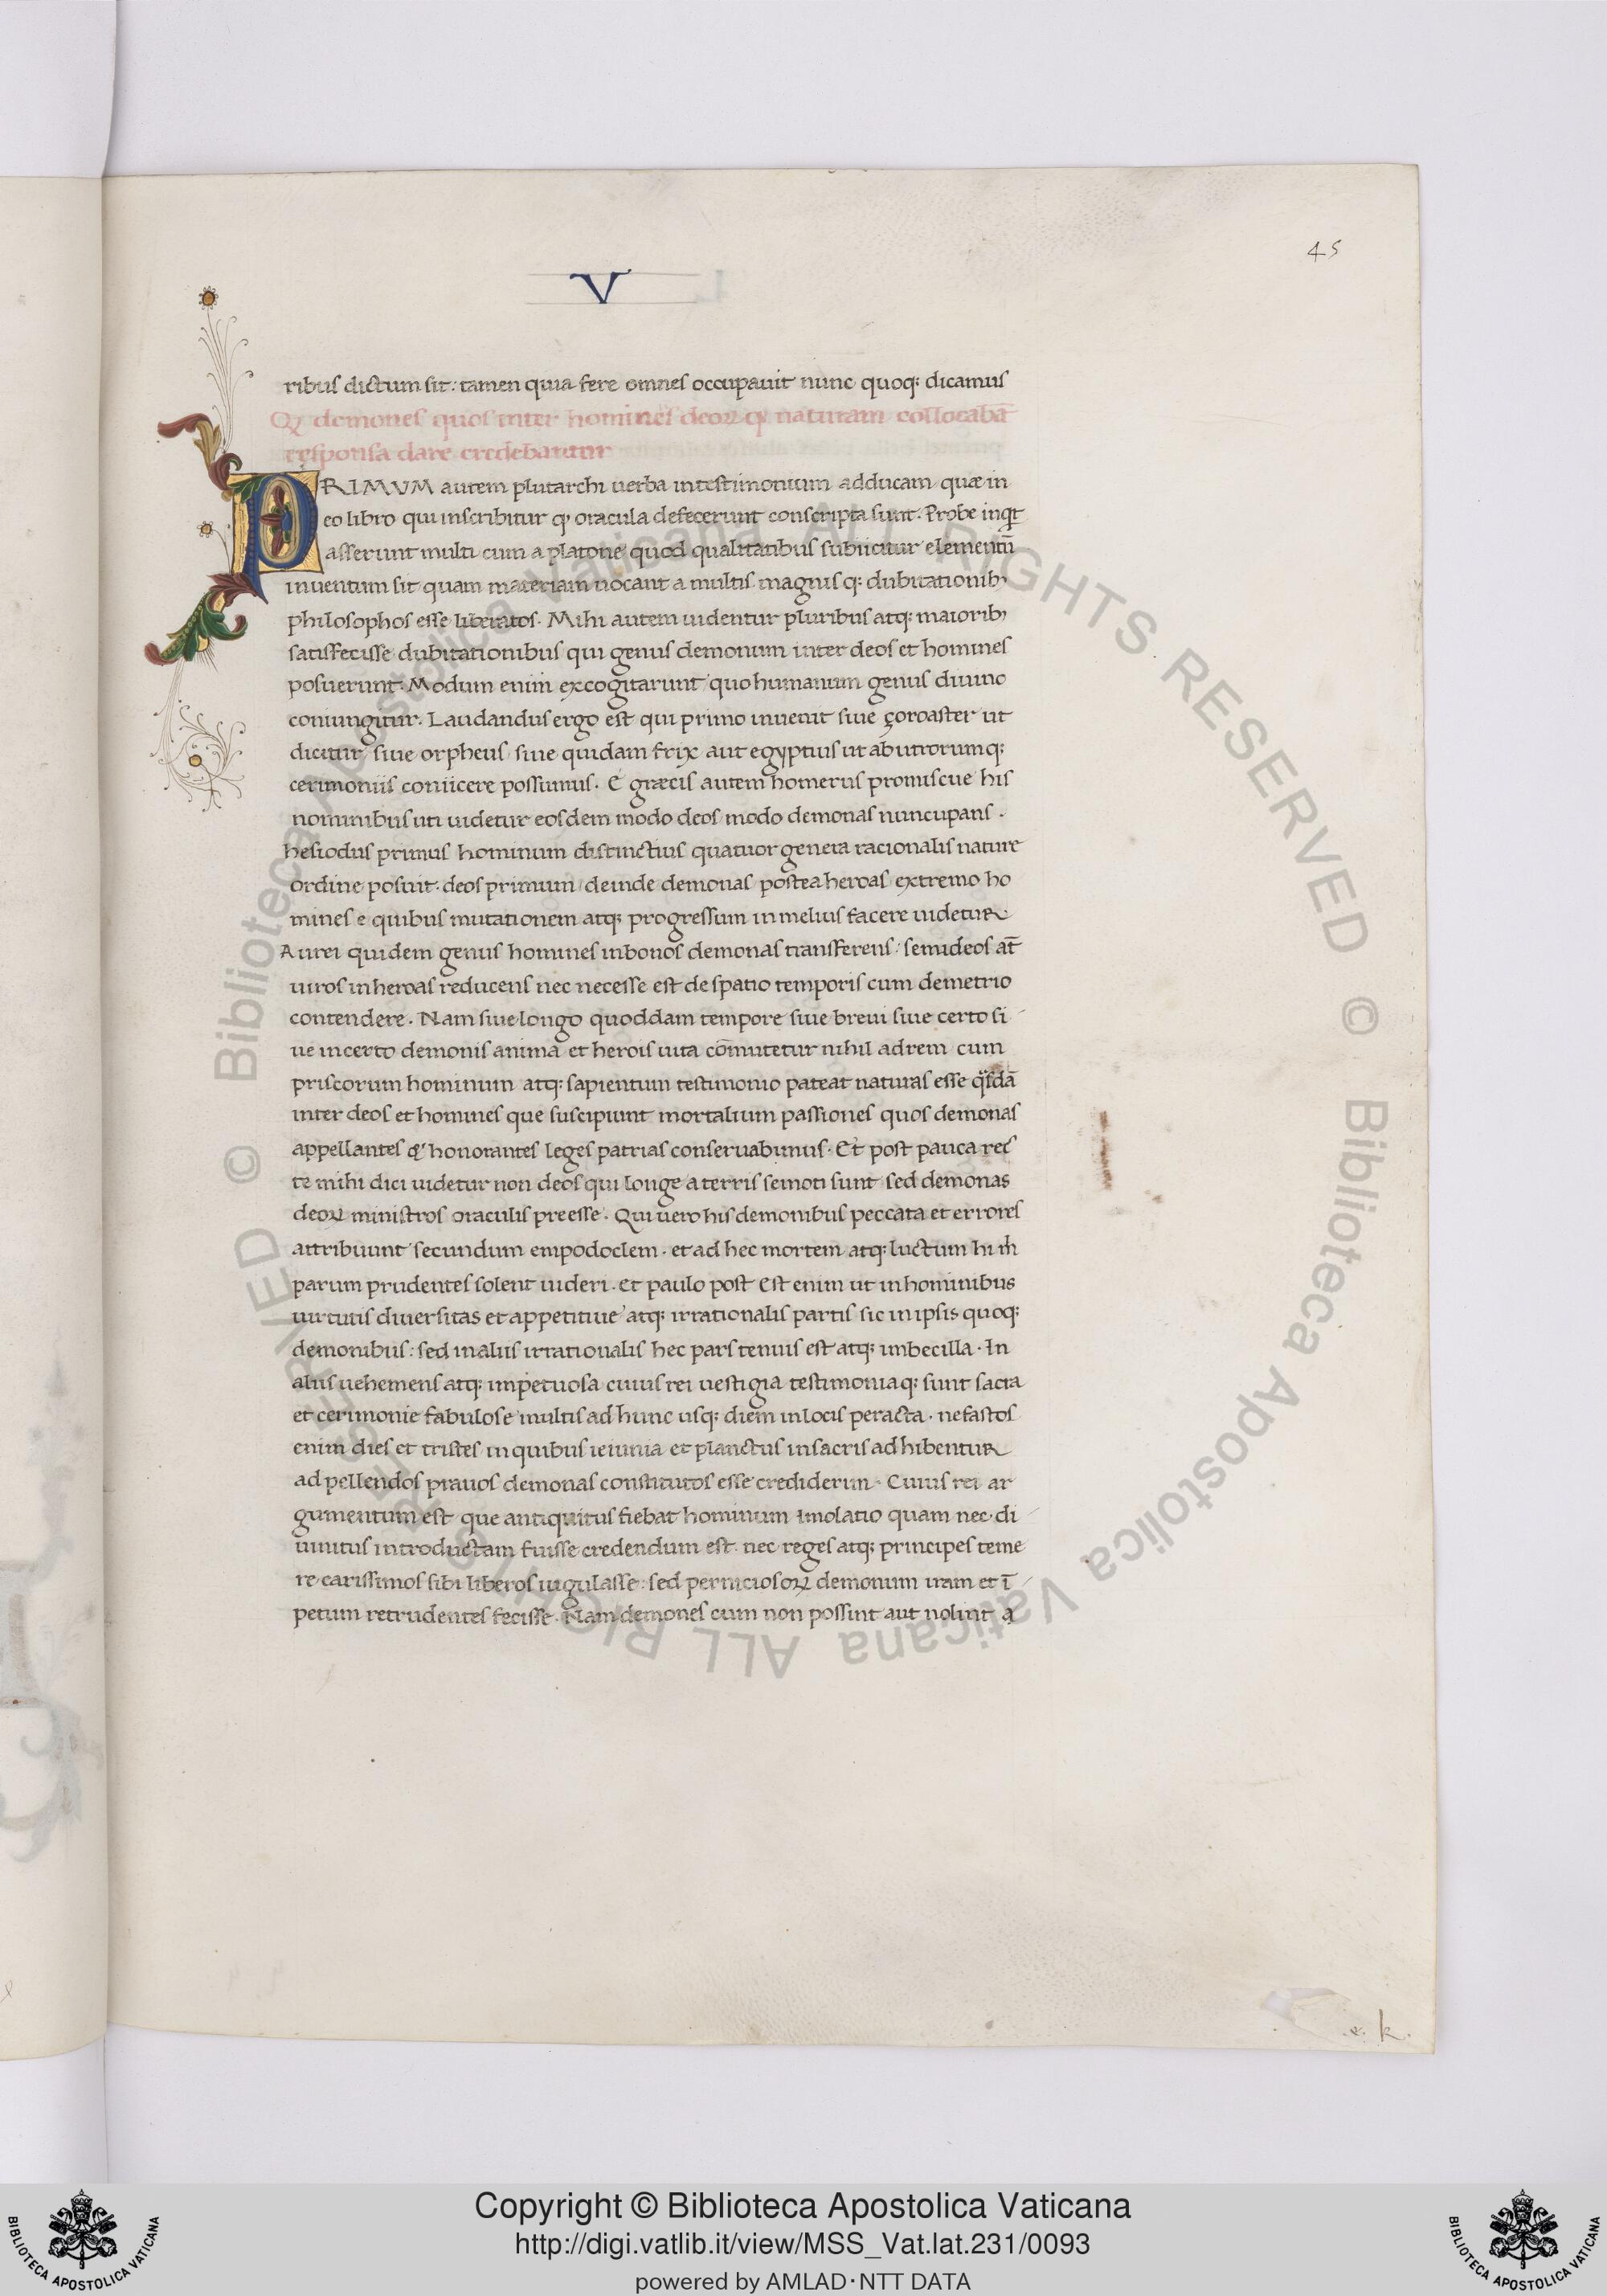 45
V
ribus dictum sit: tamen quia fere omnes occupauit nunc quoq; dicamus
Q demones quos inter homines deoꝝ q; naturam collocabāt
responsa dare credebantur
PRIMVM autem plutarchi uerba in testimonium adducam quæ in
eo libro qui inscribitur ꝙ oracula defecerunt conscripta sunt. Probe inqͥt
asserunt multi cum a platone quod qualitatibus subiicitur elementū
inuentum sit quam materiam uocant a multis magnis q; dubitationib;
philosophos esse liberatos. Mihi autem uidentur pluribus atq; maiorib;
satisfecisse dubitationibus qui genus demonum inter deos et homines
posuerunt. Modum enim excogitarunt quo humanum genus diuino
coniungitur. Laudandus ergo est qui primo inuenit siue çoroaster ut
dicitur siue orpheus siue quidam frix aut egyptius ut ab utrorumq;
cerimoniis coniicere possumus. E græcis autem homerus promiscue his
nominibus uti uidetur eosdem modo deos modo demonas nuncupans.
hesiodus primus hominum distinctius quatuor genera racionalis nature
ordine posuit. deos primum deinde demonas postea heroas extremo ho
mines e quibus mutationem atq; progressum in melius facere uidetur
Aurei quidem genus homines in bonos demonas transferens: semideos at̄
uiros in heroas reducens nec necesse est de spatio temporis cum demetrio
contendere. Nam siue longo quoddam tempore siue breui siue certo si
ue incerto demonis anima et herois uita cōmutetur nihil ad rem cum
priscorum hominum atq; sapientum testimonio pateat naturas esse q̈sdā
inter deos et homines que suscipiunt mortalium passiones quos demonas
appellantes & honorantes leges patrias conseruabimus. Et post pauca rec
te mihi dici uidetur non deos qui longe a terris semoti sunt sed demonas
deoꝝ ministros oraculis preesse. Qui uero his demonibus peccata et errores
attribuunt secundum empodoclem. et ad hec mortem atq; luctum hi m̄
parum prudentes solent uideri. et paulo post Est enim ut in hominibus
uirtutis diuersitas et appetitiue atq; irrationalis partis sic in ipsis quoq;
demonibus: sed in aliis irrationalis hec pars tenuis est atq; imbecilla. In
aliis uehemens atq; impetuosa cuius rei uestigia testimoniaq; sunt sacra
et cerimonie fabulose multis ad hunc usq; diem in locis peracta. nefastos
enim dies et tristes in quibus ieiunia et planctus in sacris adhibentur
ad pellendos prauos demonas constitutos esse crediderim. Cuius rei ar
gumentum est que antiquitus fiebat hominum imolatio quam nec di
uinitus introductam fuisse credendum est nec reges atq; principes teme
re carissimos sibi liberos iugulasse: sed perniciosoꝝ demonum iram et ī
petum retrudentes fecisse. Nam demones cum non possint aut nolint a
k.
© Biblioteca Apostolica Vaticana ALL RIGHTS RESERVED © Biblioteca Apostolica Vaticana ALL RIGHTS RESERVED
Copyright © Biblioteca Apostolica Vaticana
http://digi.vatlib.it/view/MSS_Vat.lat.231/0093
powered by AMLAD·NTT DATA
BIBLIOTECA APOSTOLICA VATICANA
BIBLIOTECA APOSTOLICA VATICANA